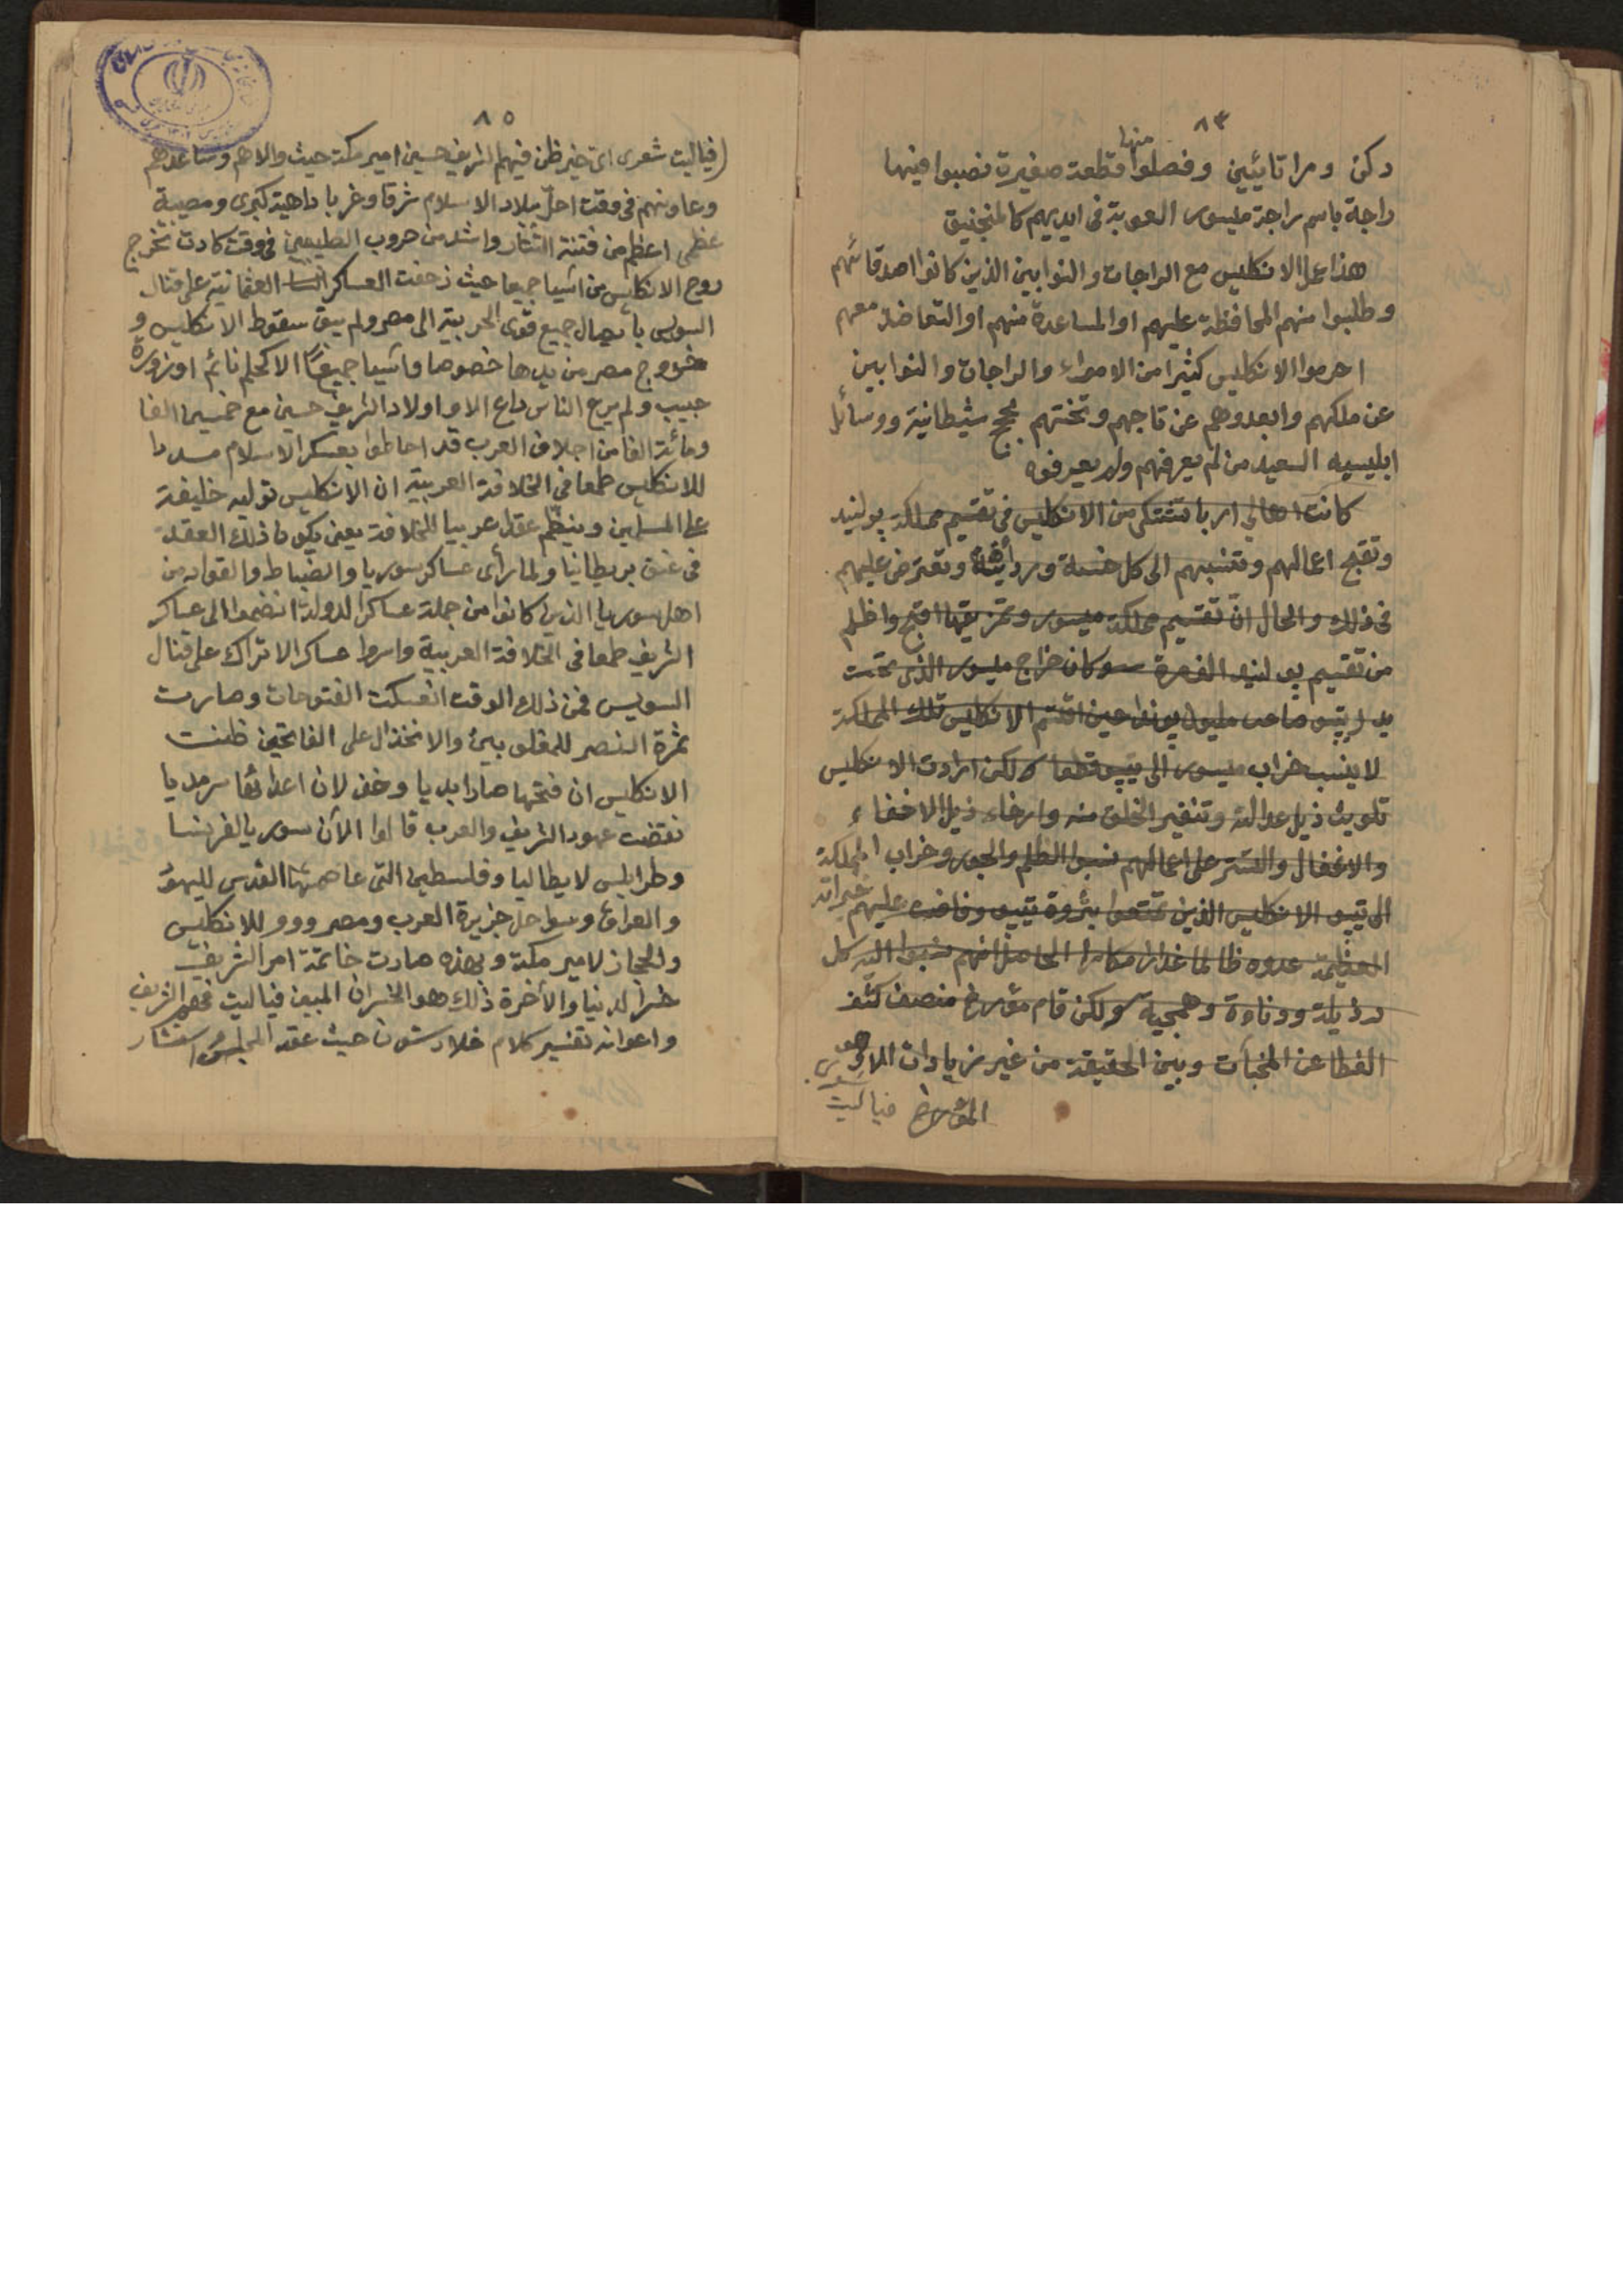 ٨٤
دكن ومراتايئين وفصلوا منها قطعة صغيرة نصبوا فيها
راجة باسم راجة ميسور العوبة في ايديهم كالمنجنيق
هذا عمل الانكليس مع الراجات والنوابين الذين كانوا اصدقائهم
وطلبوا منهم المحافظة عليهم او المساعدة منهم او التعاضد معهم
احرموا الانكليس كثيرا من الامراء والراجات والنوابين
عن ملكهم وابعدوهم عن تاجهم وتختهم بحجج شيطانية ووسائل
ابليسيه السعيد من لم يعرفهم ولم يعرفوه
كانت اهالي اربا تشتكى من الانكليس في تقسيم مملكة بولنيد
وتقبح اعمالهم وتنسبهم الى كل خسة و وتعترض عليهم
في ذلك والحال ان تقسيم مملكة ميسور وتمزيقها اقبح واظلم
من تقسيم بولنيد الف مرة وكان خراج ميسور الذى تحت
يد تيپو صاحب مليون پوند حين اقتسم الانكليس تلك المملكة
لا ينسب خراب ميسور الى تيپو قطعا ولكن ارادت الانكليس
تلويث ذيل عدالته وتنفير الخلق منه وارخاء ذيل الاخفاء
والاغفال والتستر على اعمالهم نسبوا الظلم والجور وخراب المملكة
الى تيپو الانكليس الذين تمتعوا بثروة تيپو وفاضت عليهم خيراته
العظيمة عدوه ظالما غدارا مكارا الحاصل انهم نسبوا اليه كل
رذيلة ودناءة وهمجية ولكن قام مؤرخ منصف كشف
الغطا عن المخبآت وبين الحقيقة من غير زيادات
المؤرخ فياليت
٨٥
(فياليت شعرى اى خير ظن فيهم الشريف حسين امير مكة حيث والاهم وساعدهم
وعاونهم في وقت احل ببلاد الاسلام شرقا وغربا داهية كبرى ومصيبة
عظمى اعظم من فتنة التتار واشد من حروب الصليبين في وقت كادت تخرج
روح الانكليس من آسيا جميعا حيث زحفت العساكر العثمانية على قنال
السويس بايصال جميع قوى الحربية الى مصر ولم يبق سقوط الانكليس و
خروج مصر من يدها خصوصا وآسيا جميعًا الا كحلم نائم او زورة
حبيب ولم يرع الناس داع الا واولاد الشريف حسين مع خمسين الفا
ومائة الفا من اجلاف العرب قد احاطوا بعسكر الاسلام مددا
للانكليس طمعا في الخلافة العربية ان الانكليس توليه خليفة
على المسلمين وينظم عقدا عربيا للخلافة يعنى يكون ذلك العقد
في عنق بريطانيا ولما رأى عساكر سوريا والضباط والقواد من
اهل سوريا الذين كانوا من جملة عساكر الدولة انضموا الى عساكر
الشريف طمعا في الخلافة العربية واسروا عساكر الاتراك على قنال
السويس فمن ذلك الوقت انعسكت الفتوحات وصارت
ثمرة النصر للمغلوبين والانخذال على الفاتحين ظنت
الانكليس ان فتحها صار ابديا وخذلان اعدائها سرمديا
نقضت عهود الشريف والعرب قالوا الآن سوريا لفرنسا
وطرابلس لايطاليا وفلسطين التى عاصمتها القدس لليهود
والعراق وسواحل جزيرة العرب ومصر ووو للانكليس
والحجاز لامير مكة وبهذه صارت خاتمة امر الشريف
خسر الدنيا والأخرة ذلك هو الخسران المبين فياليت فهم الشريف
واعوانه تفسير كلام غلادستون حيث عقد المجلس استشار